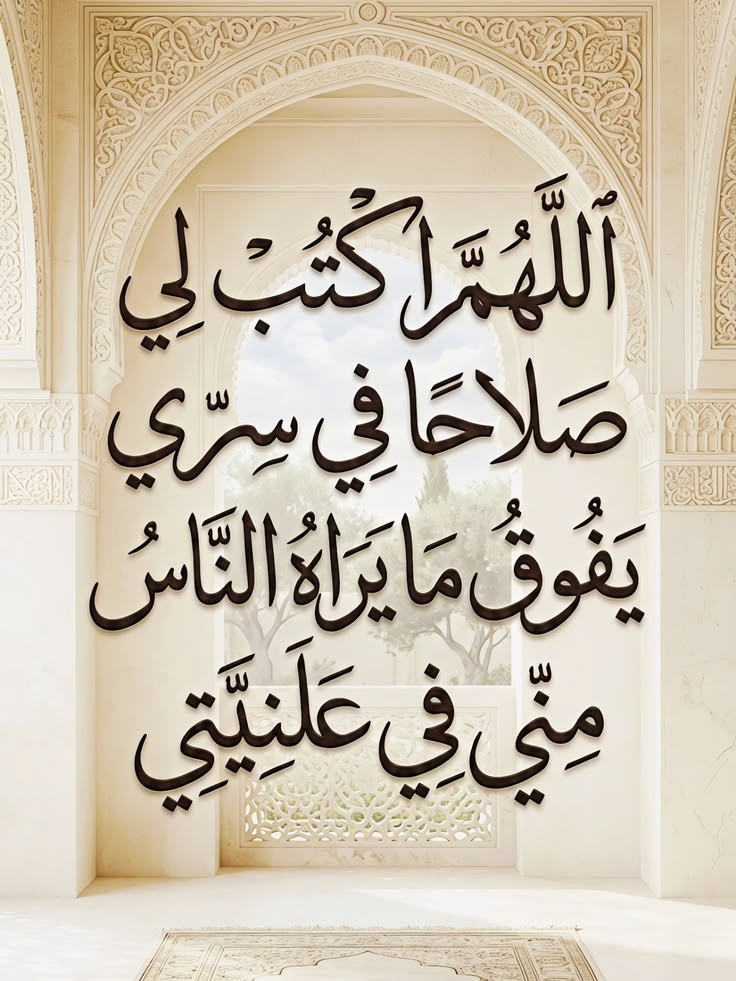 ٱللَّهُمَّ اكْتُبْ لِي
صَلَاحًا فِي سِرِّي
يَفُوقُ مَا يَرَاهُ النَّاسُ
مِنِّي فِي عَلَنِيَّتِي